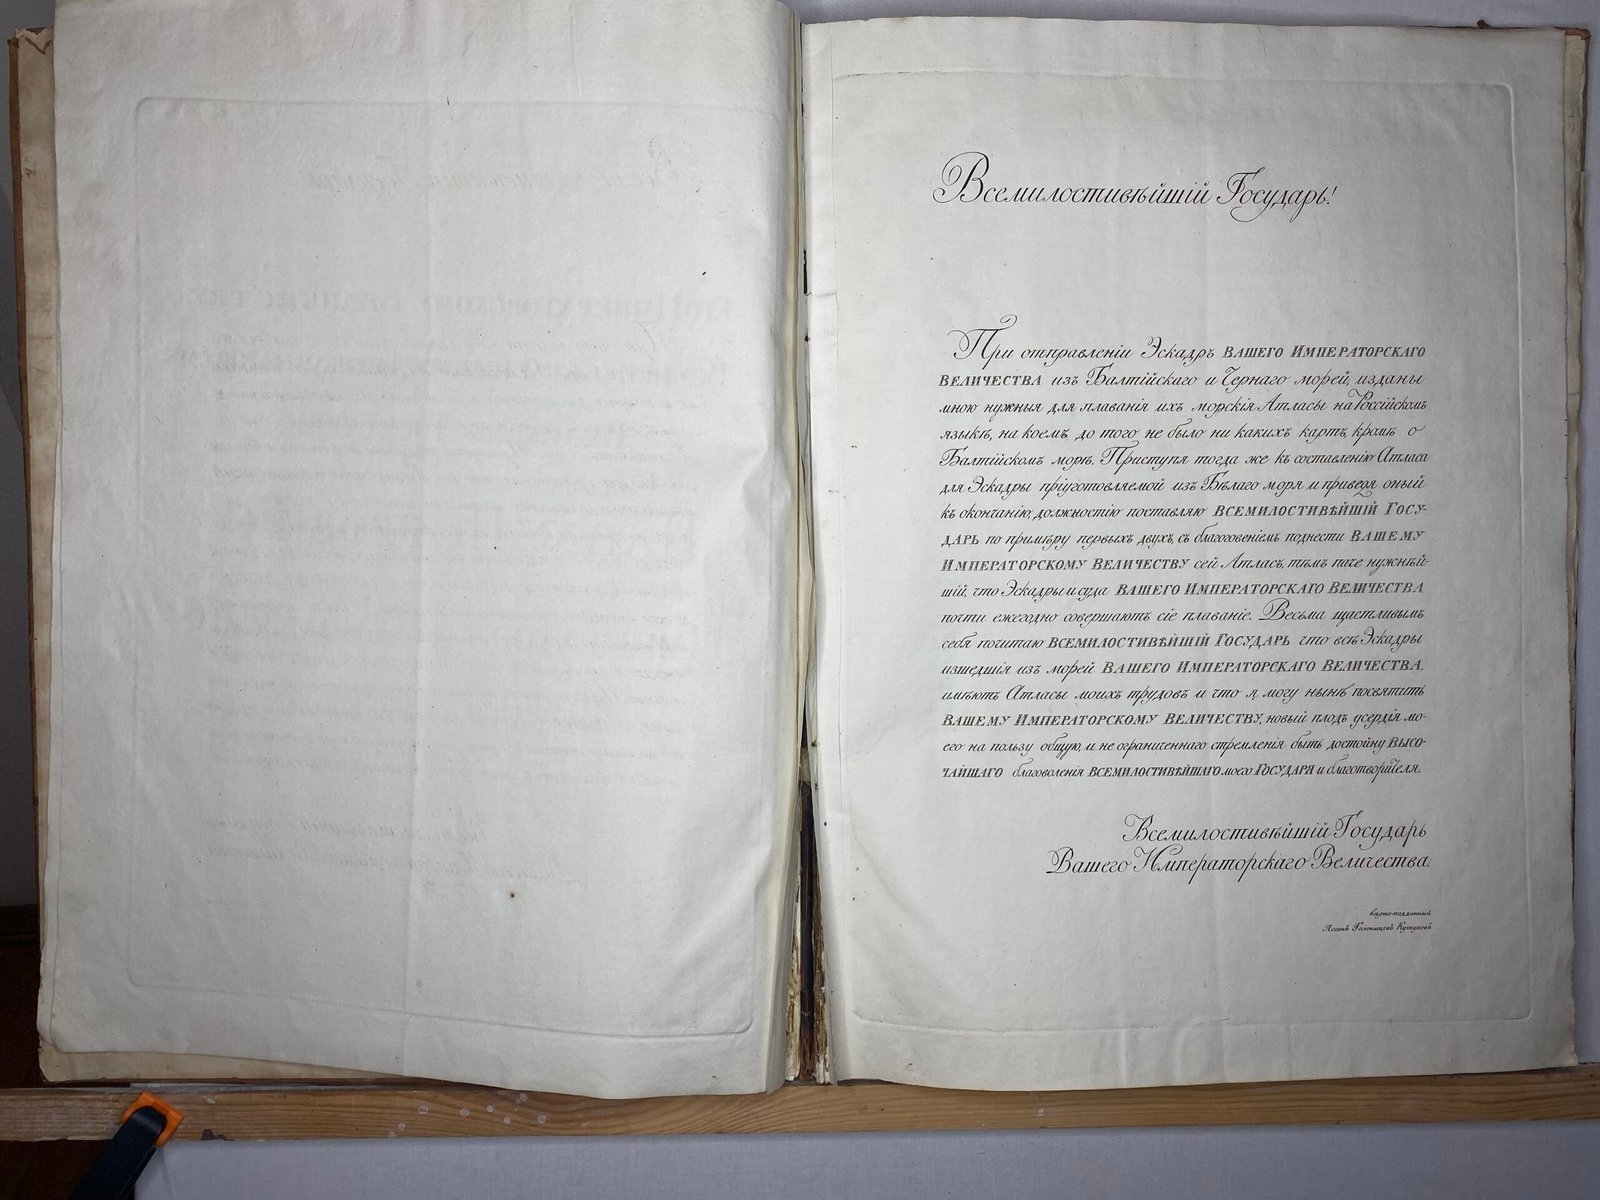 Всемилостивѣйшій Государь!
При отправленіи Эскадръ ВАШЕГО ИМПЕРАТОРСКАГО
ВЕЛИЧЕСТВА изъ Балтійскаго и Чернаго морей, изданы
мною нужныя для плаванія ихъ морскія Атласы на Россійскомъ
языкѣ, на коемъ до того не было ни какихъ картъ, кромѣ о
Балтійскомъ морѣ. Приступя тогда же къ составленію Атласа
для Эскадры пріуготовляемой изъ Бѣлаго моря и приведя оный
къ окончанію, должностію поставляю ВСЕМИЛОСТИВѢЙШІЙ ГОСУ-
ДАРЬ по примѣру первыхъ двухъ, съ благоговеніемъ поднести ВАШЕМУ
ИМПЕРАТОРСКОМУ ВЕЛИЧЕСТВУ сей Атласъ, тѣмъ паче нужнѣй-
шій, что Эскадры и суда ВАШЕГО ИМПЕРАТОРСКАГО ВЕЛИЧЕСТВА
почти ежегодно совершаютъ сіе плаваніе. Весьма щастливымъ
себя почитаю ВСЕМИЛОСТИВѢЙШІЙ ГОСУДАРЬ что всѣ Эскадры
изшедшія изъ морей ВАШЕГО ИМПЕРАТОРСКАГО ВЕЛИЧЕСТВА.
имѣютъ Атласы моихъ трудовъ и что я могу нынѣ посвятить
ВАШЕМУ ИМПЕРАТОРСКОМУ ВЕЛИЧЕСТВУ, новый плодъ усердія мо-
его на пользу общую, и не ограниченнаго стремленія быть достойну ВЫСО-
ЧАЙШАГО благоволенія ВСЕМИЛОСТИВѢЙШАГО моего ГОСУДАРЯ и благотворителя.
Всемилостивѣйшій Государь
Вашего Императорскаго Величества.
вѣрно-подданный
Логинъ Голенищевъ Кутузовъ.